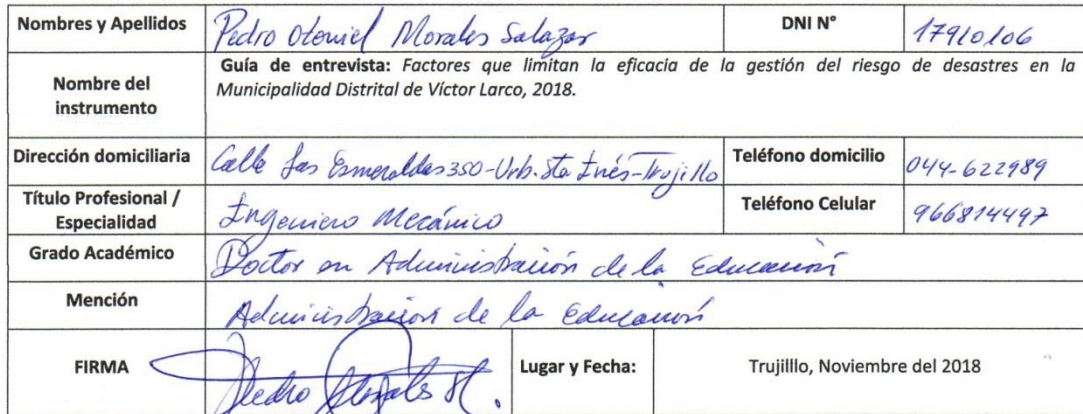 Nombres y Apellidos Pedro Otoniel Morales Salazar DNI N° 17910106
Nombre del instrumento Guía de entrevista: Factores que limitan la eficacia de la gestión del riesgo de desastres en la
Municipalidad Distrital de Víctor Larco, 2018.
Dirección domiciliaria Calle Las Esmeraldas 350-Urb. Sta Inés-Trujillo Teléfono domicilio 044-622989
Título Profesional / Especialidad Ingeniero Mecánico Teléfono Celular 966814497
Grado Académico Doctor en Administración de la Educación
Mención Administración de la Educación
FIRMA Pedro Morales S. Lugar y Fecha: Trujilllo, Noviembre del 2018